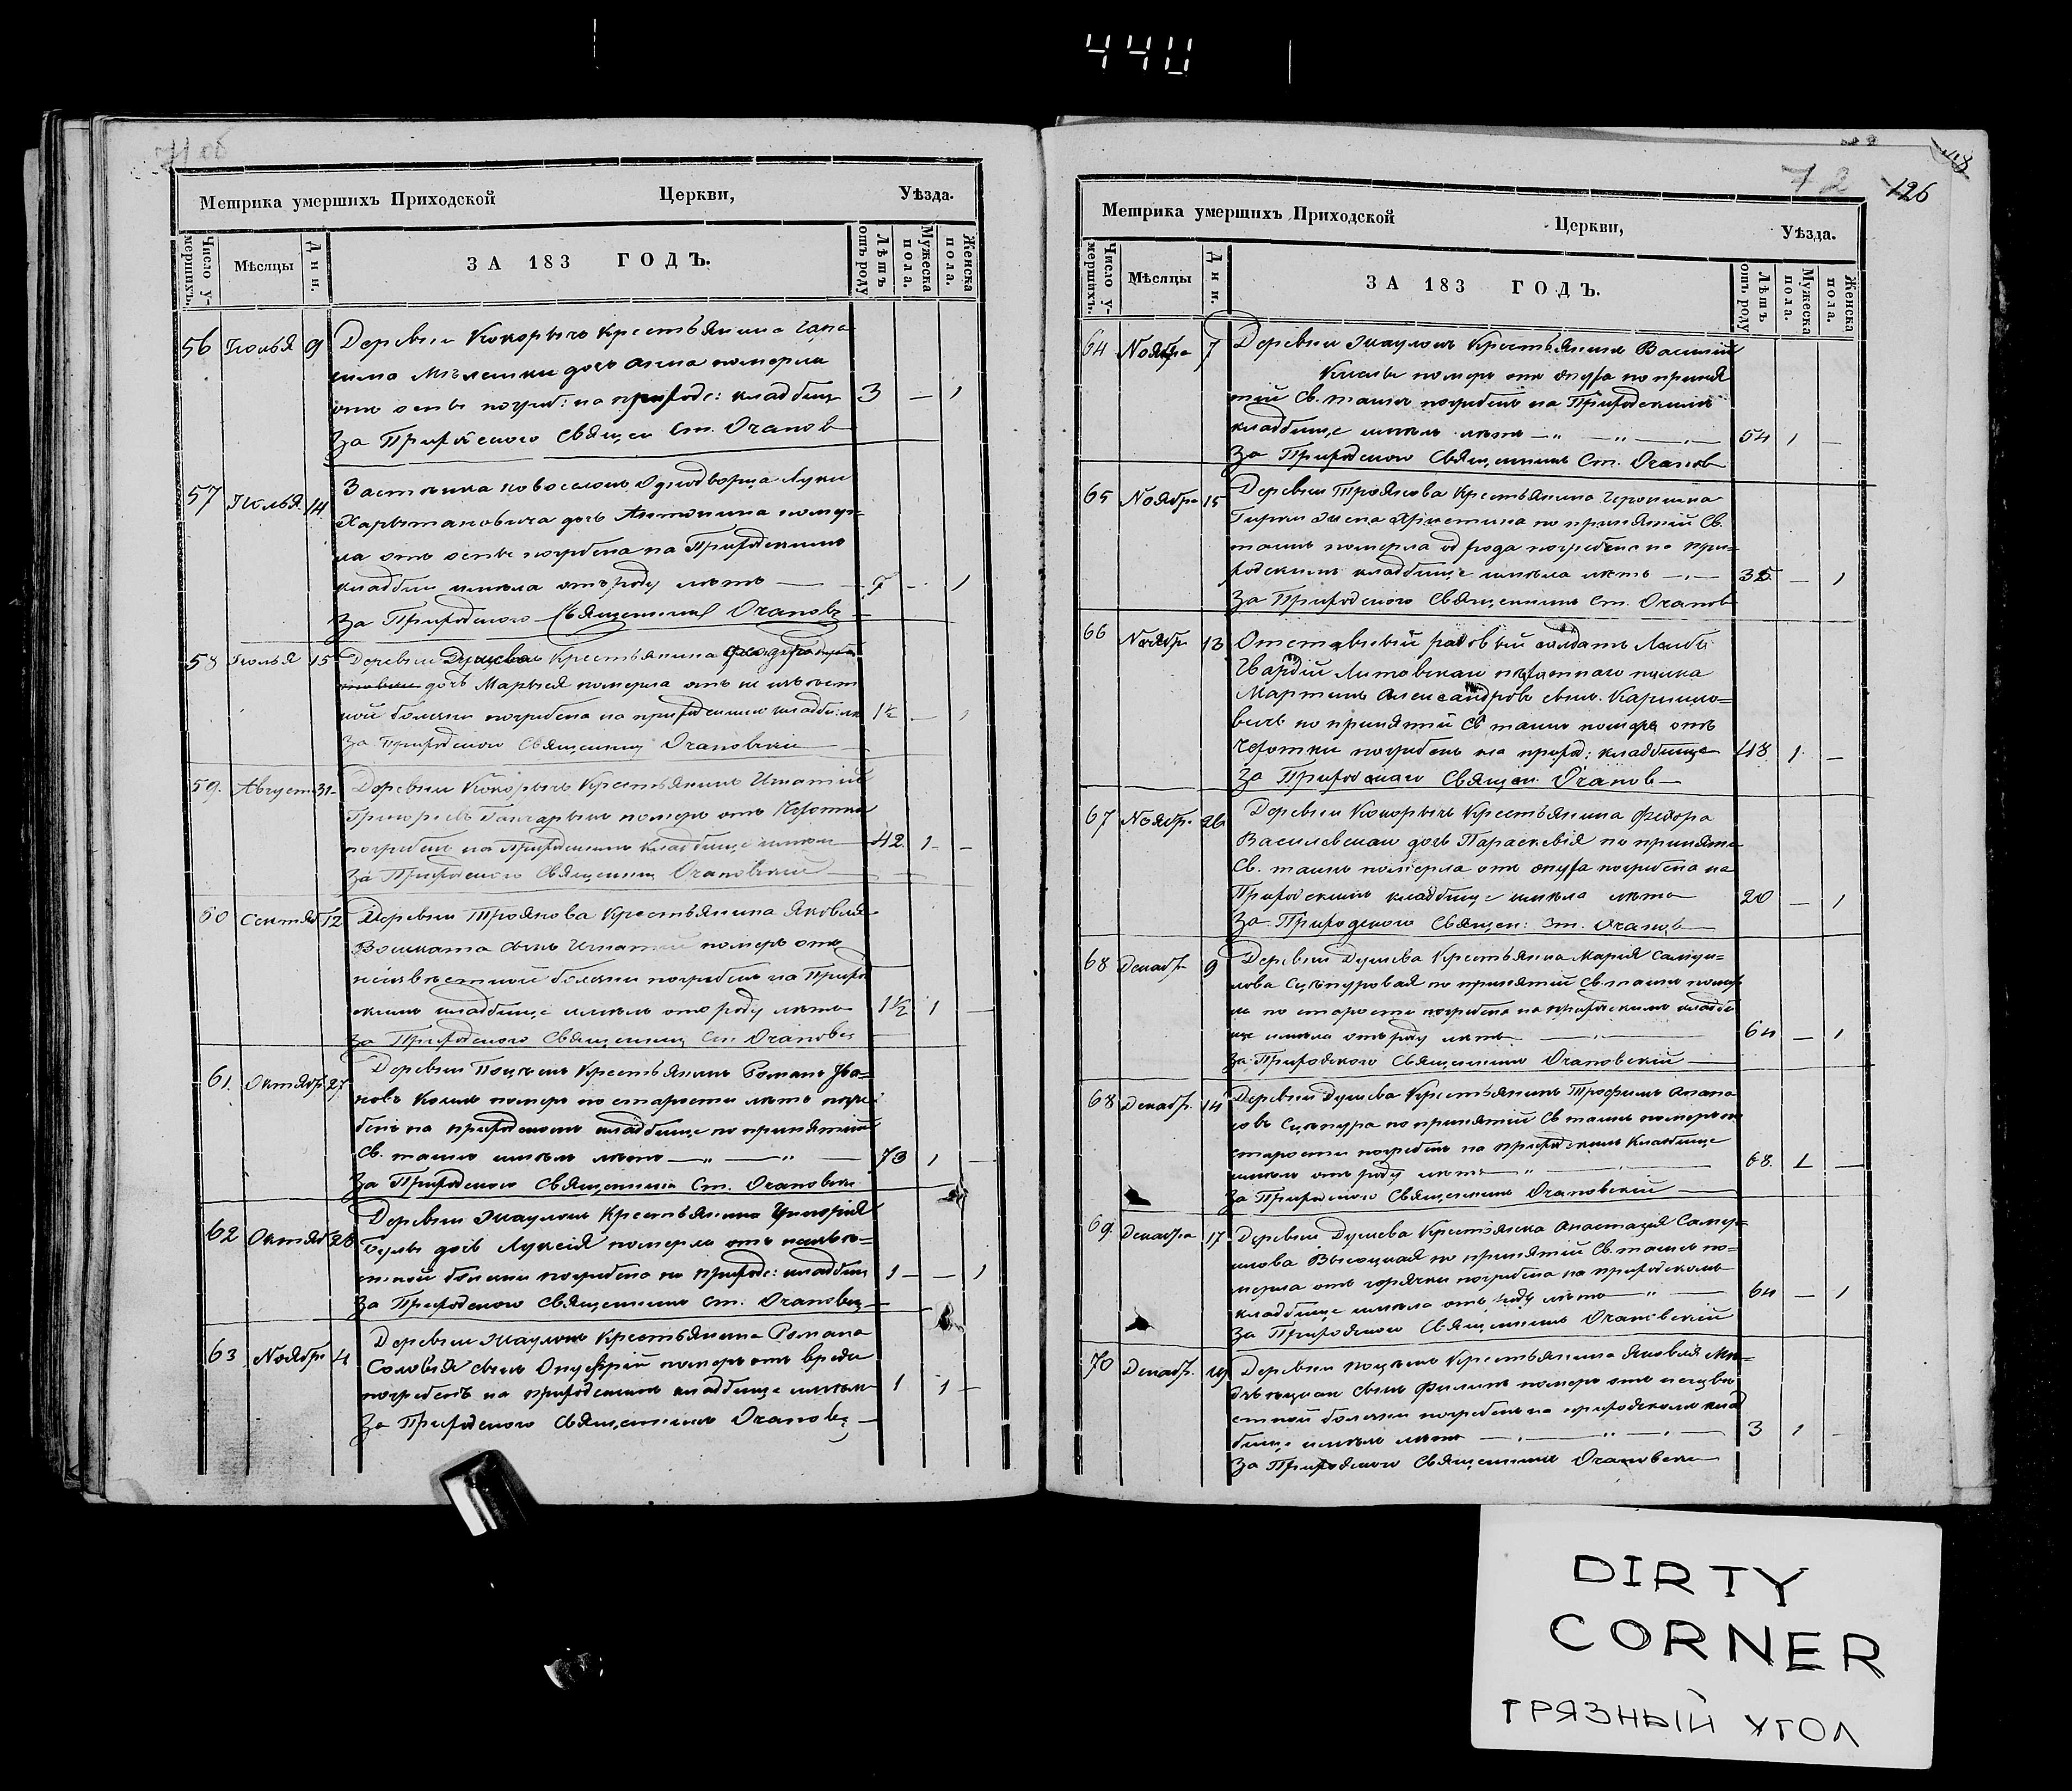 440
71 об
Метрика умершихъ Приходской Церкви, Уѣзда.
Число умершихъ. Мѣсяцы Дни. ЗА 183 ГОДЪ. Лѣтъ отъ роду Мужеска пола. Женска пола.
56 Іюлья 9 Деревни Кокорычъ Крестьянина
дочь Анна померла
3 — 1
За Приход Священ Ст. Очанов
57 Іюлья 14 Застѣнка Новоселокъ Однодворца Луки
Харытановича дочь Антонина помер=
ла отъ оспы погребена на Приходскимъ
кладбищ имѣла отъ роду лѣтъ — — 1
За Приходского Священника Очановъ
58 Іюлья 15 Деревни Душева Крестьянина
дочь Марыся померла отъ не извест
ной болезни погребена на приходскимъ кладби 1½ — 1
За Приходского Священник Очановски
59. Август 31 Деревни Кокорычъ Крестьянинъ Игнатій
Григорьевъ Гончарыкъ померъ отъ Чехотки
погребенъ на Приходскимъ кладбище имѣл 42 1 —
За Приходского Священник Очановский
60 Сентяб 12 Деревни Троянова Крестьянина Яковля
сынъ Игнатий померъ отъ
неизвестной болезни погребенъ на Прихо
скимъ кладбище имѣлъ отъ роду лѣтъ 1½ 1 —
За Приходского Священник Ст. Очановск
61. Октябр 27 Деревни Поцѣекъ Крестьянинъ Романъ Ива=
новъ померъ по старости лѣтъ погре
бенъ на приходскомъ кладбище по принятий
Св. таинъ имѣлъ лѣтъ — „ — „ — 73 1 —
За Приходского Священника Ст. Очановски
62 Октяб 28 Деревни Жаулокъ Крестьянина Григорія
дочь Луксія померла отъ неизвѣ=
стной болезни погребена на приходс: кладбищ 1 — — 1
За Приходского Священника Ст. Очановц
63 Ноябр 4 Деревни Жаулокъ Крестьянина Романа
Соловія сынъ Онуфрій померъ отъ вреды
погребенъ на приходскимъ кладбище имѣлъ 1 1 —
За Приходского Священника Очановц
72 126
Метрика умершихъ Приходской Церкви, Уѣзда.
Число умершихъ. Мѣсяцы Дни. ЗА 183 ГОДЪ. Лѣтъ отъ роду Мужеска пола. Женска пола.
64 Ноября 7 Деревни Жаулокъ Крестьянинъ Василий
померъ отъ опуха по приня
тій Св. таинъ погребенъ на Приходскимъ
кладбище имѣлъ лѣтъ — „ — „ — 54 1 —
За Приходского Священника Ст. Очанов
65 Ноябр 15 Деревни Троянова Крестьянина
жена Христина по принятій Св.
таинъ померла од рода погребена на при=
ходскимъ кладбище имѣла лѣтъ — 35 — 1
За Приходского Священника Ст. Очанов
66 Ноябр 13 Отставный рядовый солдатъ Лейбъ
Гвардій Литовскаго пехотнаго полка
Мартинъ Александровъ сынъ
по принятій Св таинъ померъ отъ
Чехотки погребенъ на приход: кладбище 48 1 —
За Приходского Священ. Очанов
67 Ноябр. 26 Деревни Кокорычъ Крестьянина Федора
Василевскаго дочь Параскевія по приняти
Св. таинъ померла отъ опуха погребена на
Приходскимъ кладбище имѣла лѣтъ 20 — 1
За Приходского Священ: Ст. Очанов
68 Декабр 9 Деревни Душева Крестьянка Марія Самуи=
лова по принятій Св. таинъ помер
ла по старости погребена на приходскимъ кладби
ще имѣла отъ роду лѣтъ — 64 — 1
За Приходского Священника Очановский
68 Декабр. 14 Деревни Душева Крестьянинъ Трофимъ Апана
совъ по принятій Св таинъ померъ по
старости погребенъ на приходскимъ кладбище
имѣлъ отъ роду лѣтъ — „ — 68. 1 —
За Приходского Священникъ Очановский
69. Декабра 17 Деревни Душева Крестьянка Анастазія Самуи=
лова Высоцкая по принятій Св. таинъ по=
мерла отъ горячки погребена на приходскомъ
кладбище имѣла отъ роду лѣтъ „ — 64 — 1
За Приходского Священникъ Очановский
70 Декабр. 19 Деревни Поцѣекъ Крестьянина Яковля
сынъ Филипъ померъ отъ неизвѣ
стной болезни погребенъ на приходскомъ клад
бище имѣлъ лѣтъ — „ — „ — 3 1 —
За Приходского Священника Очановски
DIRTY
CORNER
ГРЯЗНЫЙ УГОЛ